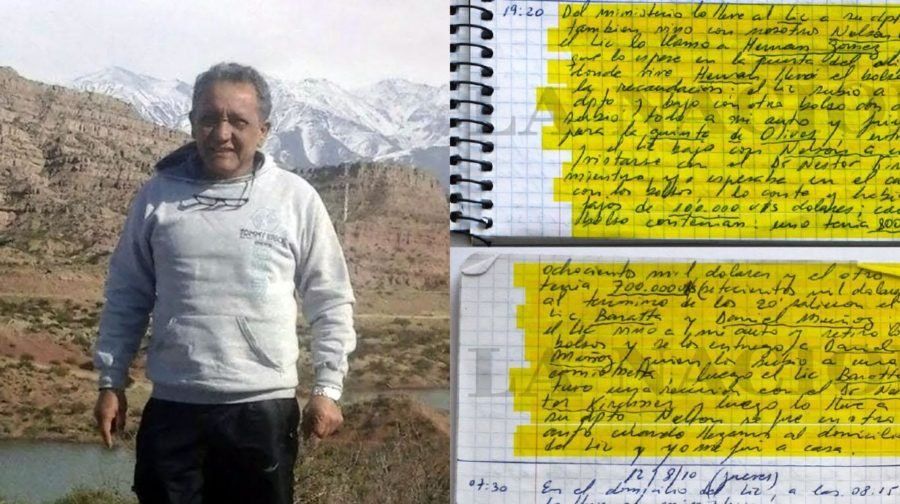 TOMMY
19:20 Del ministerio lo lleve al Lic a su dpto
tambien vino con nosotros Nelson
el Lic lo llamo a Hernan Gomez
que lo espere en la puerta del
donde vive, Hernan llevó el bolso
la recaudación; el Lic subio a
dpto y bajo con otro bolso con
subio todo a mi auto y
para la quinta de Olivos y
el Lic bajo con Nelson a
con el Dr Nestor
mientra, yo esperaba en el
con los bolsos, lo conto y
fajos de 100.000 U$S dolares, ca
bolso contenian: uno tenia 800
LA NACION
ochociento mil dolares y el otro
tenia 700.000 U$S (setecientos mil dolares
al termino de los 20' salieron el
Lic Baratta y Daniel Muñoz
el Lic vino a mi auto y retiro
bolsos y se los entrego a Daniel
Muñoz quien lo subio a una
camioneta luego el Lic Baratta
tuvo una reunion con el Dr Nes
tor Kirchner luego lo lleve a
su dpto Nelson se fue en otro
auto cuando llegamos al domicilio
del Lic y yo me fui a casa.
LA NAC
12/8/10 (jueves)
07:30 En el domicilio del Lic, a las 08.15